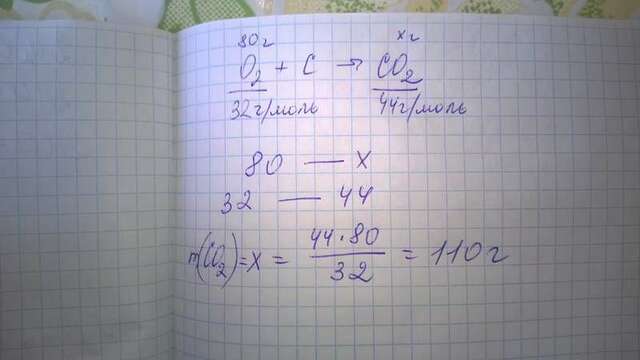 80г xг
O₂ + C → CO₂
32г/моль 44г/моль
80 — x
32 — 44
m(CO₂) = x = 44·80/32 = 110г